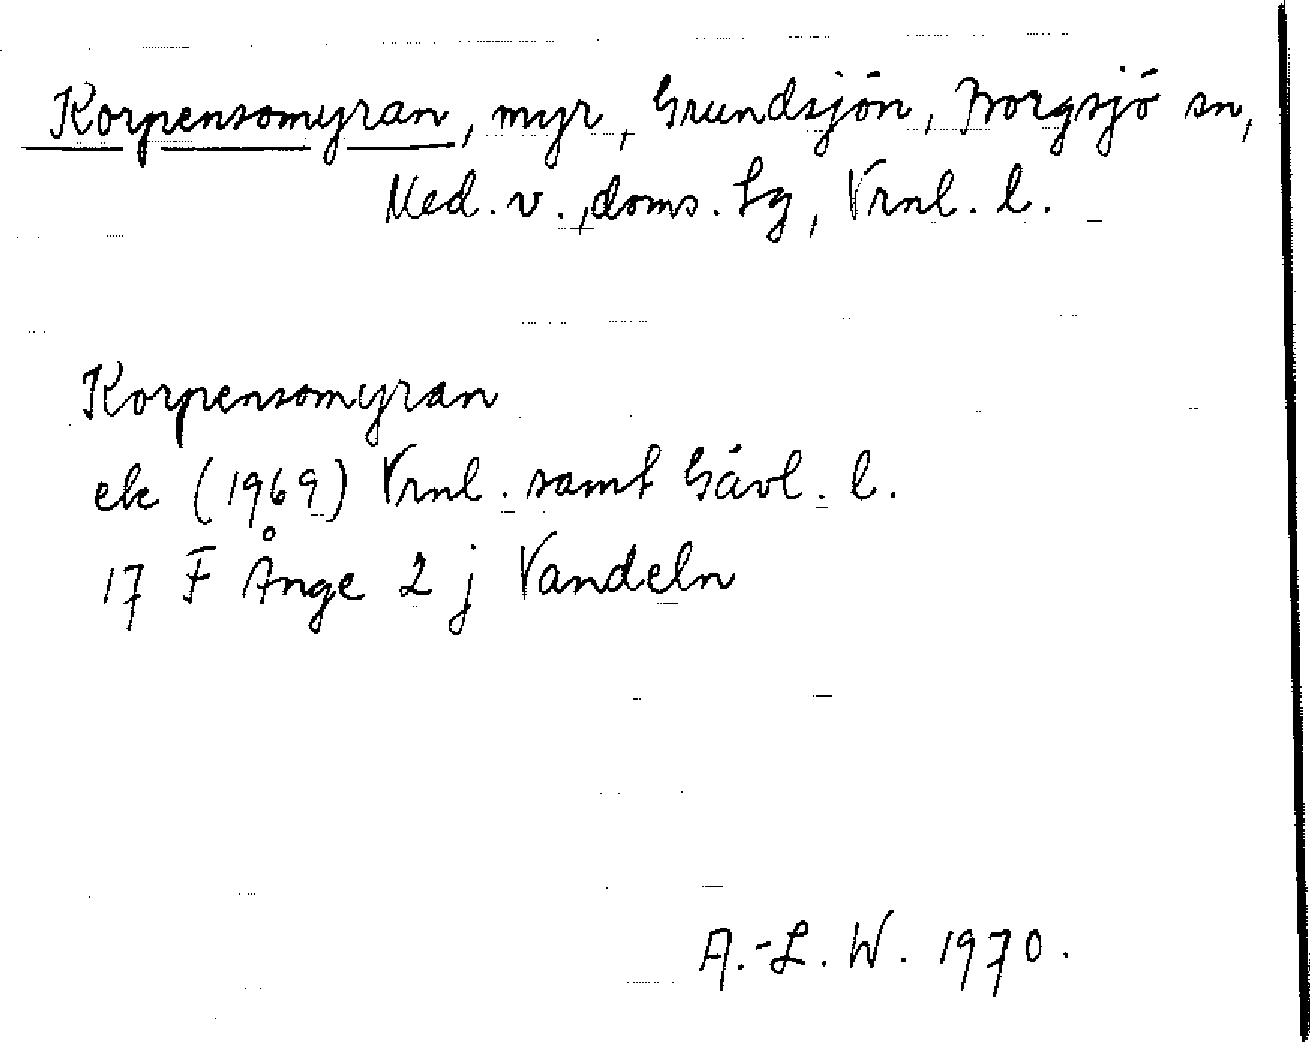 Korpensomyran, myr, Grundsjön, Borgsjö sn,
Med. v., doms. lg, Vrnl. l.
Korpensomyran
ek (1969) Vrnl. samt Gävl. l.
17 F Ånge 2 j Vandeln
A.-L. W. 1970.